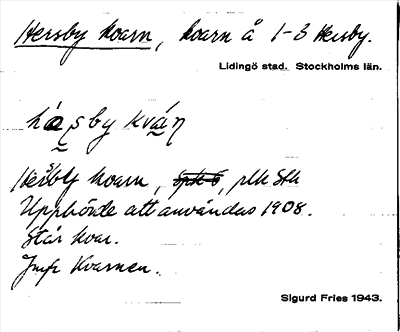 Hersby kvarn, kvarn å 1-3 Hersby.
Lidingö stad. Stockholms län.
hæ̱ʂby kva̱ɳ
Hersby kvarn, plk Sth
Upphörde att användas 1908.
Står kvar.
Jmfr Kvarnen.
Sigurd Fries 1943.